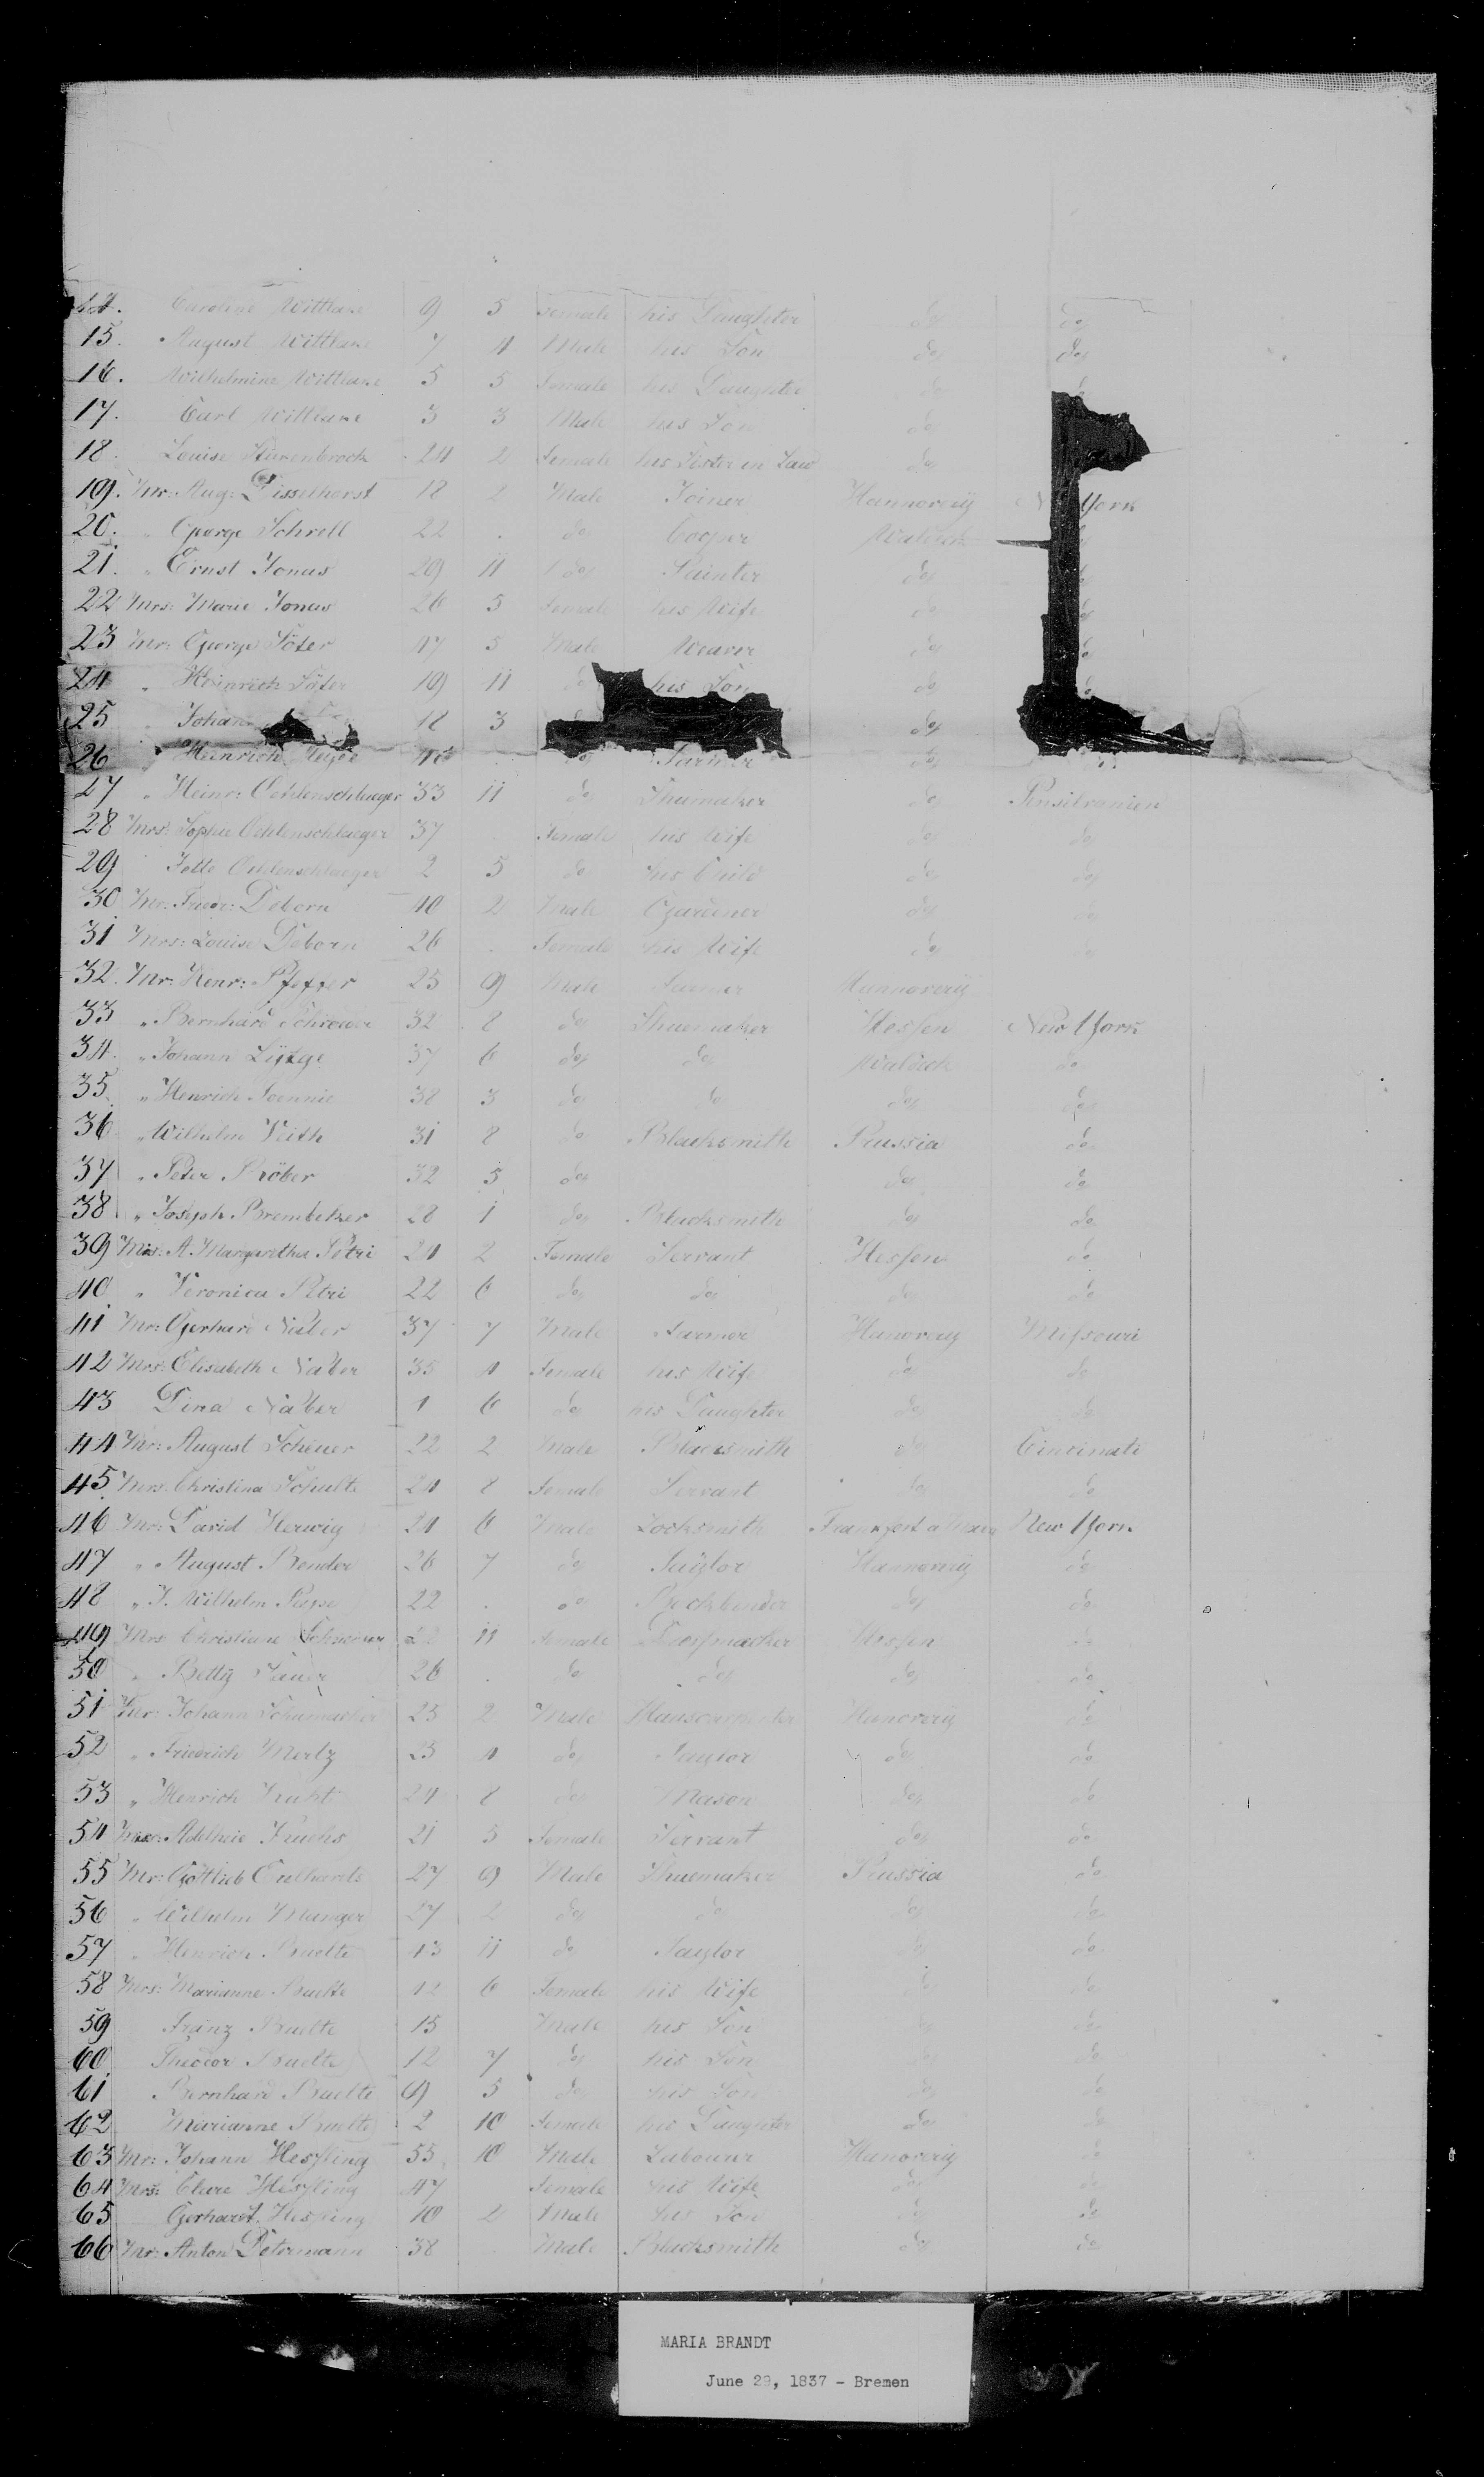 14. Caroline Wittlake 9 5 female his Daughter do do
15. August Wittlake 7 4 Male his Son do do
16. Wilhelmine Wittlake 5 5 Female his Daughter do
17. Carl Wittlake 3 3 Male his Son do
18. Louise 24 2 Female his Sister in Law do
19. Mr: Aug: Disselhorst 18 2 Male Joiner Hannovery York
20. " George Schrell 22 . do Cooper Waldeck
21. " Ernst Jonas 29 11 do Painter do
22 Mrs: Marie Jonas 26 5 Female his Wife do
23 Mr: George Söter 47 5 Male Weaver do
24 " Heinrich Söter 19 11 do his Son do
25 " Johann 18 3 do
26 " Heinrich do Farmer do
27 " Heinr: Oehlenschlaeger 33 11 do Shumaker do Pensilvanien
28 Mrs: Sophie Oehlenschlaeger 37 Female his Wife do do
29 Jette Oehlenschlaeger 2 5 do his Child do do
30 Mr: Friedr: Deborn 40 2 Male Gardener do do
31 Mrs: Louise Deborn 26 . Female his Wife do do
32. Mr: Henr: Pfeffer 25 9 Male Farmer Hannovery
33 " Bernhard 32 8 do Shuemaker Hessen New York
34. " Johann 37 6 do do Waldeck do
35. " Henrich 38 3 do do do do
36 " Wilhelm Veith 31 8 do Blacksmith Prussia do
37 " Peter Pröber 32 5 do do do
38 " Joseph Brembeker 28 1 do Blacksmith do do
39 Mis: A. Margaretha Petri 24 2 Female Servant Hessen do
40 " Veronica Petri 22 6 do do do do
41 Mr: Gerhard Naber 37 7 Male Farmer Hanovery Missouri
42 Mrs: Elisabeth Naber 35 4 Female his Wife do do
43 Dina Naber 1 6 do his Daughter do do
44 Mr: August Scheuer 22 2 Male Blacksmith do Cincinati
45 Mrs: Christina Schulte 24 8 Female Servant do do
46 Mr: David Herwig 24 6 Male Locksmith Frankfort a Main New York
47 " August Bender 26 7 do Taylor Hannovery do
48 " J. Wilhelm 22 . do Bockbinder do do
49 Mrs Christiane 11 Female Dressmacker Hessen do
50 " Betty 26 . do do do do
51 Mr: Johann Schumacher 25 2 Male Hauscarpenter Hanovery do
52 " Friedrich Mertz 25 4 do Taylor do do
53 " Henrich 24 8 do Mason do do
54 Adelheie Fuchs 21 5 Female Servant do do
55 Mr: Gottlieb 27 9 Male Shuemaker Prussia do
56 " Wilhelm Manger 27 2 do do do do
57 " Henrich Bruelte 43 11 do Taylor do do
58 Mrs: Marianne Bruelte 42 6 Female his Wife do do
59 Franz Bruelte 15 Male his Son do do
60 Theodor Bruelte 12 7 do his Son do do
61 Bernhard Bruelte 9 5 do his Son do do
62 Marianne Bruelte 2 10 Female his Daughter do do
63 Mr: Johann Hessling 55 10 Male Labourer Hanovery do
64 Mrs: Clare Hessling 47 Female his Wife do do
65 Gerhardt Hessling 10 2 Male his Son do do
66 Mr: Anton Determann 38 Male Blacksmith do do
MARIA BRANDT
June 29, 1837 - Bremen